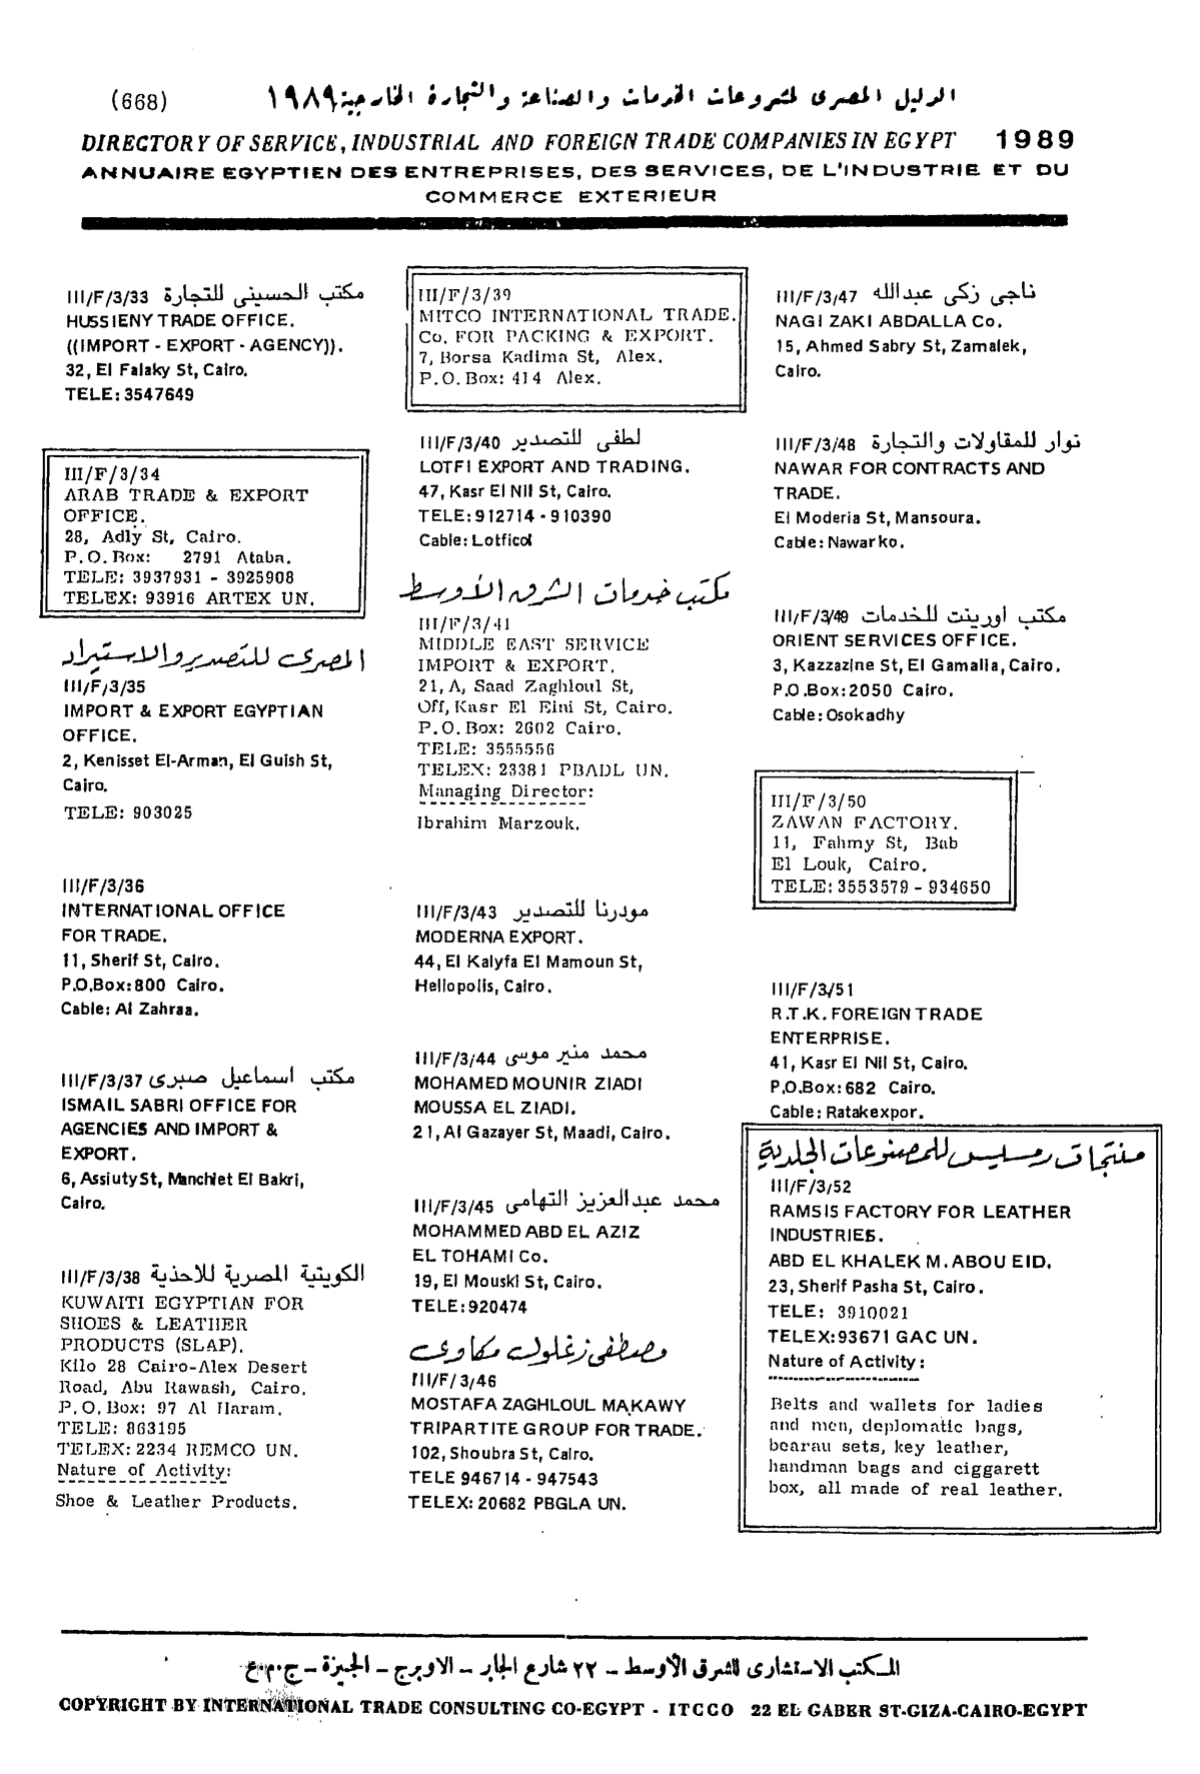 (668) الدليل المصرى لمشروعات الخدمات والصناعة والتجارة الخارجية ١٩٨٩
DIRECTORY OF SERVICE, INDUSTRIAL AND FOREIGN TRADE COMPANIES IN EGYPT 1989
ANNUAIRE EGYPTIEN DES ENTREPRISES, DES SERVICES, DE L'INDUSTRIE ET DU
COMMERCE EXTERIEUR
III/F/3/33 مكتب الحسينى للتجارة
HUSSIENY TRADE OFFICE.
((IMPORT - EXPORT - AGENCY)).
32, El Falaky St, Cairo.
TELE: 3547649
III/F/3/34
ARAB TRADE & EXPORT
OFFICE.
28, Adly St, Cairo.
P.O.Box: 2791 Ataba.
TELE: 3937931 - 3925908
TELEX: 93916 ARTEX UN.
المصرى للتصدير والاستيراد
III/F/3/35
IMPORT & EXPORT EGYPTIAN
OFFICE.
2, Kenisset El-Arman, El Guish St,
Cairo.
TELE: 903025
III/F/3/36
INTERNATIONAL OFFICE
FOR TRADE.
11, Sherif St, Cairo.
P.O.Box: 800 Cairo.
Cable: Al Zahraa.
III/F/3/37 مكتب اسماعيل صبرى
ISMAIL SABRI OFFICE FOR
AGENCIES AND IMPORT &
EXPORT.
6, Assiuty St, Manchiet El Bakri,
Cairo.
III/F/3/38 الكويتية المصرية للاحذية
KUWAITI EGYPTIAN FOR
SHOES & LEATHER
PRODUCTS (SLAP).
Kilo 28 Cairo-Alex Desert
Road, Abu Rawash, Cairo.
P.O.Box: 97 Al Haram.
TELE: 863195
TELEX: 2234 REMCO UN.
Nature of Activity:
Shoe & Leather Products.
III/F/3/39
MITCO INTERNATIONAL TRADE.
Co. FOR PACKING & EXPORT.
7, Borsa Kadima St, Alex.
P.O.Box: 414 Alex.
III/F/3/40 لطفى للتصدير
LOTFI EXPORT AND TRADING.
47, Kasr El Nil St, Cairo.
TELE: 912714 - 910390
Cable: Lotficol
مكتب خدمات الشرق الأوسط
III/F/3/41
MIDDLE EAST SERVICE
IMPORT & EXPORT.
21, A, Saad Zaghloul St,
Off, Kasr El Eini St, Cairo.
P.O.Box: 2602 Cairo.
TELE: 3555556
TELEX: 23381 PBADL UN.
Managing Director:
Ibrahim Marzouk.
III/F/3/43 مودرنا للتصدير
MODERNA EXPORT.
44, El Kalyfa El Mamoun St,
Heliopolis, Cairo.
III/F/3/44 محمد منير موسى
MOHAMED MOUNIR ZIADI
MOUSSA EL ZIADI.
21, Al Gazayer St, Maadi, Cairo.
III/F/3/45 محمد عبدالعزيز التهامى
MOHAMMED ABD EL AZIZ
EL TOHAMI Co.
19, El Mouski St, Cairo.
TELE: 920474
مصطفى زغلول مكاوى
III/F/3/46
MOSTAFA ZAGHLOUL MAKAWY
TRIPARTITE GROUP FOR TRADE.
102, Shoubra St, Cairo.
TELE 946714 - 947543
TELEX: 20682 PBGLA UN.
III/F/3/47 ناجى زكى عبدالله
NAGI ZAKI ABDALLA Co.
15, Ahmed Sabry St, Zamalek,
Cairo.
III/F/3/48 نوار للمقاولات والتجارة
NAWAR FOR CONTRACTS AND
TRADE.
El Moderia St, Mansoura.
Cable: Nawarko.
III/F/3/49 مكتب اورينت للخدمات
ORIENT SERVICES OFFICE.
3, Kazzazine St, El Gamalia, Cairo.
P.O.Box: 2050 Cairo.
Cable: Osokadhy
III/F/3/50
ZAWAN FACTORY.
11, Fahmy St, Bab
El Louk, Cairo.
TELE: 3553579 - 934650
III/F/3/51
R.T.K. FOREIGN TRADE
ENTERPRISE.
41, Kasr El Nil St, Cairo.
P.O.Box: 682 Cairo.
Cable: Ratakexpor.
منتجات رمسيس للمصنوعات الجلدية
III/F/3/52
RAMSIS FACTORY FOR LEATHER
INDUSTRIES.
ABD EL KHALEK M. ABOU EID.
23, Sherif Pasha St, Cairo.
TELE: 3910021
TELEX: 93671 GAC UN.
Nature of Activity:
Belts and wallets for ladies
and men, deplomatic bags,
bearau sets, key leather,
handman bags and ciggarett
box, all made of real leather.
المكتب الاستشارى للشرق الأوسط - ٢٢ شارع الجابر - الاوبرج - الجيزة - ج.م.ع
COPYRIGHT BY INTERNATIONAL TRADE CONSULTING CO-EGYPT - ITCCO 22 EL GABER ST-GIZA-CAIRO-EGYPT